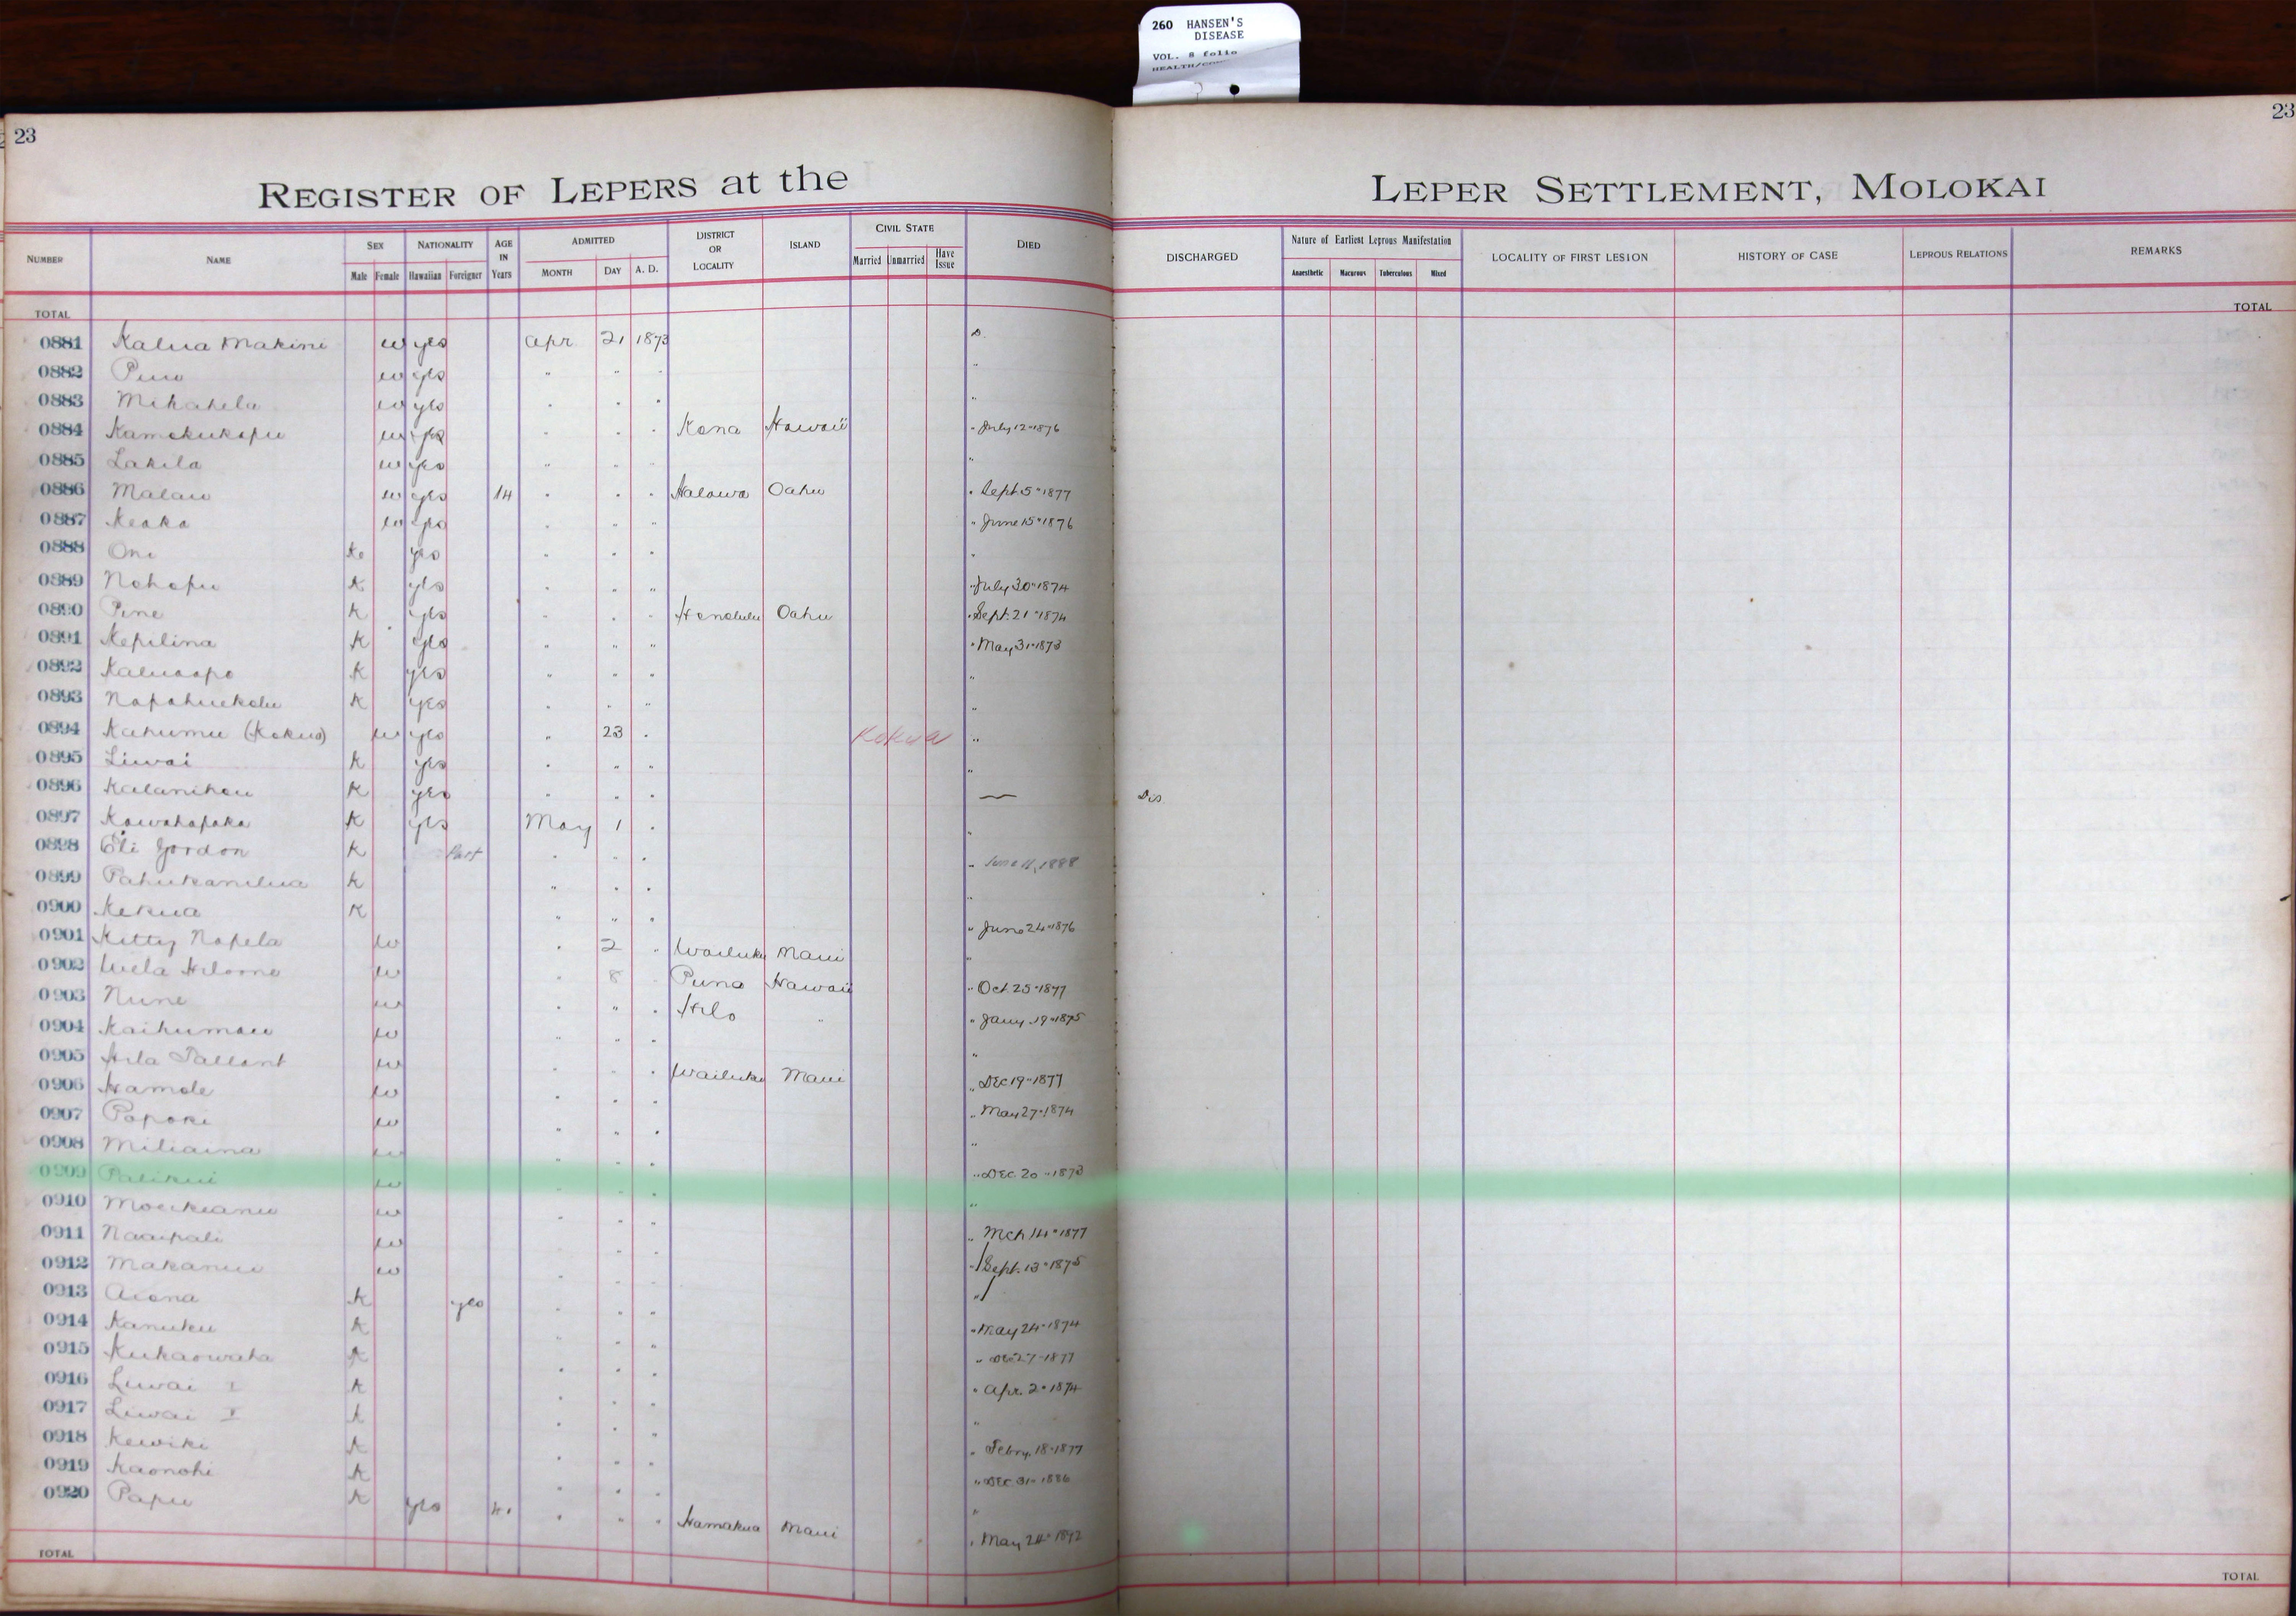 260 HANSEN'S
DISEASE
VOL. 8 folio
23
23
REGISTER OF LEPERS at the LEPER SETTLEMENT, MOLOKAI
NUMBER NAME SEX NATIONALITY AGE IN Years ADMITTED DISTRICT OR LOCALITY ISLAND CIVIL STATE DIED DISCHARGED Nature of Earliest Leprous Manifestation LOCALITY OF FIRST LESION HISTORY OF CASE LEPROUS RELATIONS REMARKS
Male Female Hawaiian Foreigner MONTH DAY A. D. Married Unmarried Have Issue Anaesthetic Macurous Tuberculous Mixed
TOTAL TOTAL
0881 Kalua Makini w yes Apr 21 1873 D.
0882 w yes " " " "
0883 Mikahela w yes " " " "
0884 Kamokukapu w yes " " " Kona Hawaii " July 12 " 1876
0885 Lakila w yes " " " "
0886 Malau w yes 14 " " " Halawa Oahu " Sept. 5 " 1877
0887 Keaka w yes " " " " June 15 " 1876
0888 Oni K yes " " " "
0889 Nohopu K yes " " " " July 30 " 1874
0890 Pine K yes " " " Honolulu Oahu " Sept. 21 " 1874
0891 Kepilina K yes " " " " May 31 " 1873
0892 K yes " " " "
0893 Napahuekolu K yes " " " "
0894 Kahumu (Kokua) w yes " 23 " Kokua "
0895 Liwai K yes " " " "
0896 Kalanihou K yes " " " — Dis
0897 Kawahapaka K yes May 1 " "
0898 Eli Gordon K Part " " " " June 11, 1888
0899 Pahukanilua K " " " "
0900 Kekua K " " " " June 24 " 1876
0901 Kitty Napela w " 2 " Wailuku Maui "
0902 w " 8 Puna Hawaii " Oct. 25 " 1877
0903 Nune w " " " Hilo " " Jany. 19 " 1875
0904 Kaihumau w " " " "
0905 Hila Tallant w " " " Wailuku Maui " Dec 19 " 1877
0906 Hamole w " " " " May 27 " 1874
0907 Papoki w " " " "
0908 Miliaina w " " " " Dec. 20 " 1873
0909 Palikui w " " " "
0910 w " " " " Mch 14 " 1877
0911 Naaipali w " " " " Sept. 13 " 1875
0912 Makanui w " " " "
0913 Aiona K yes " " " " May 24 " 1874
0914 Kanuku K " " " 27 " 1877
0915 Kukaowaha K " " " " Apr. 2 " 1874
0916 Liwai I K " " " "
0917 Liwai K " " " " Febry. 18 " 1877
0918 Kewiki K " " " " Dec 31 " 1886
0919 Kaonohi K " " " "
0920 Papu K yes " " " Hamakua Maui " May 24 " 1892
TOTAL TOTAL